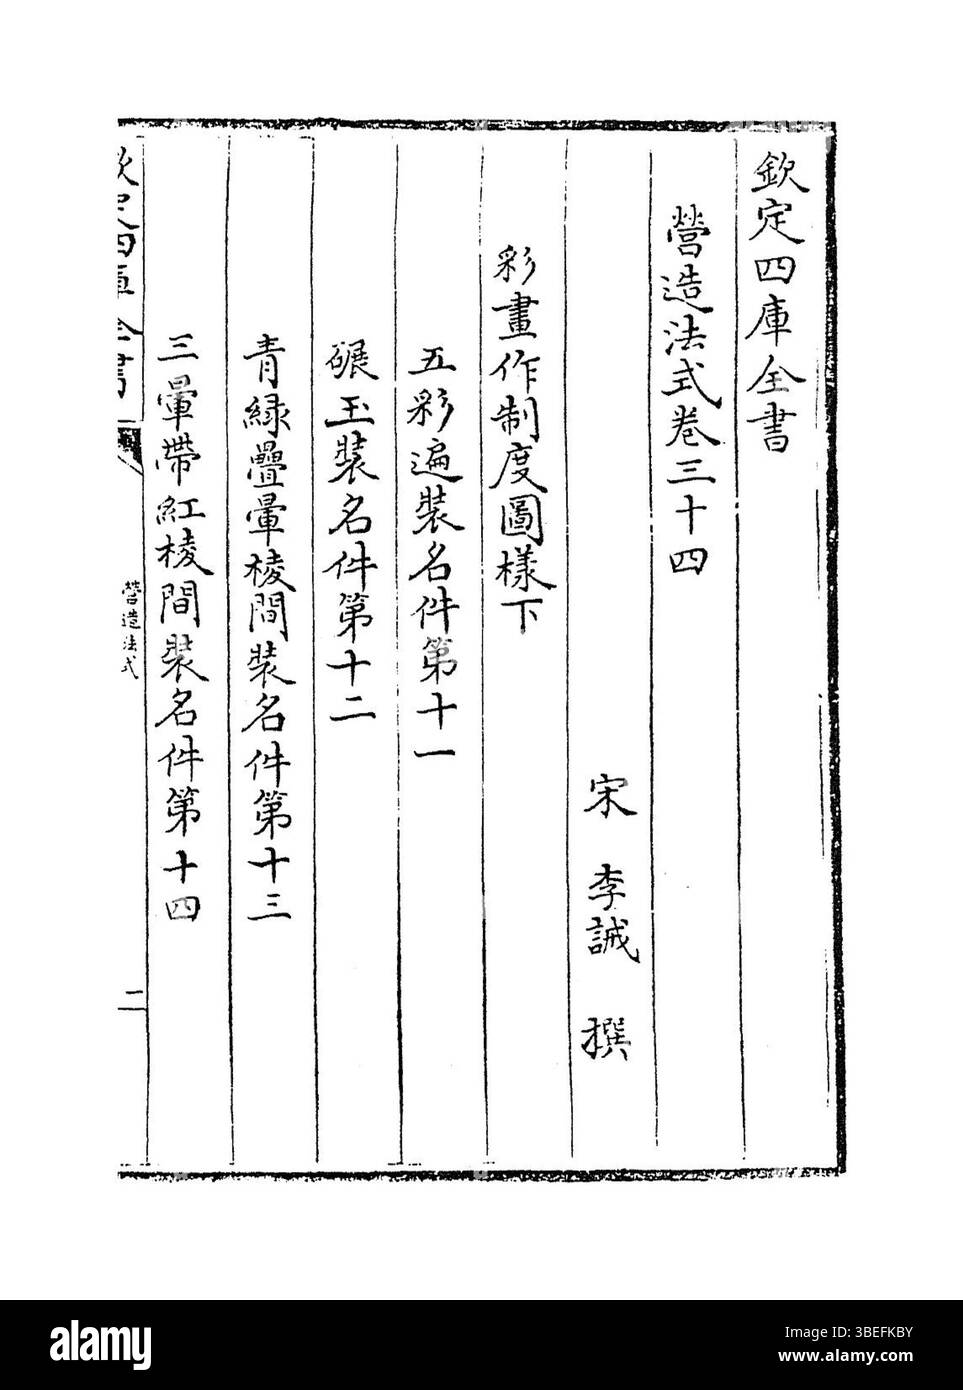 欽定四庫全書
營造法式卷三十四
宋 李誡 撰
彩畫作制度圖樣下
五彩遍裝名件第十一
碾玉裝名件第十二
青緑疊暈棱間裝名件第十三
三暈帶紅棱間裝名件第十四
欽定四庫全書
營造法式
二
alamy
Image ID: 3BEFKBY
www.alamy.com